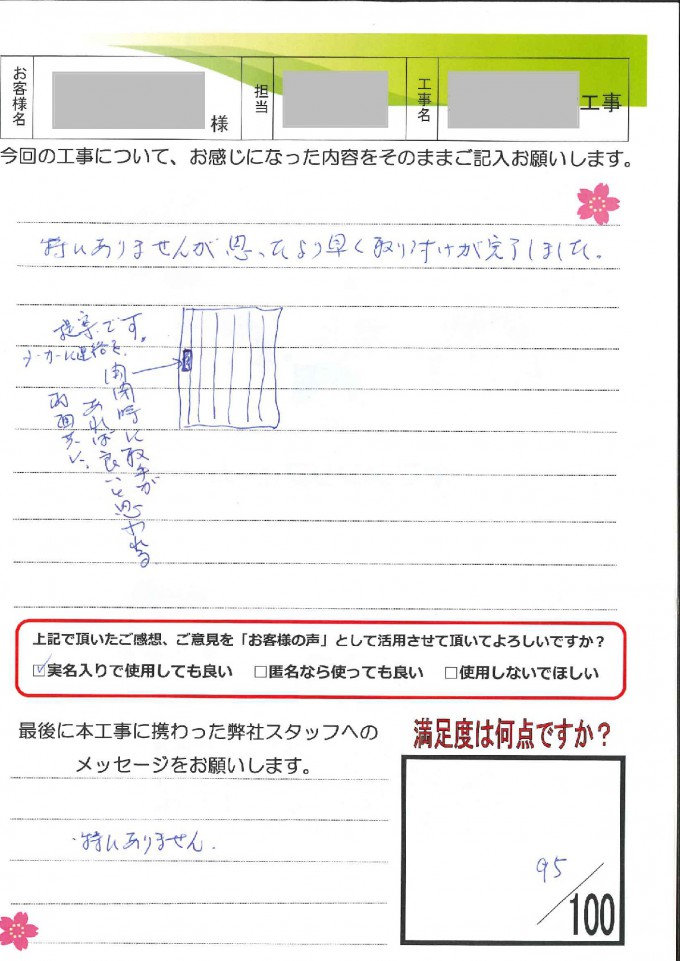 お客様名
様
担当
工事名
工事
今回の工事について、お感じになった内容をそのままご記入お願いします。
特にありませんが思ったより早く取り付けが完了しました。
提案です。
メーカーに連絡を、
開閉時に取手が
あれば良いと思われる
両面共に、
上記で頂いたご感想、ご意見を「お客様の声」として活用させて頂いてよろしいですか？
☑実名入りで使用しても良い　□匿名なら使っても良い　□使用しないでほしい
最後に本工事に携わった弊社スタッフへの
メッセージをお願いします。
・特にありません.
満足度は何点ですか？
95/100